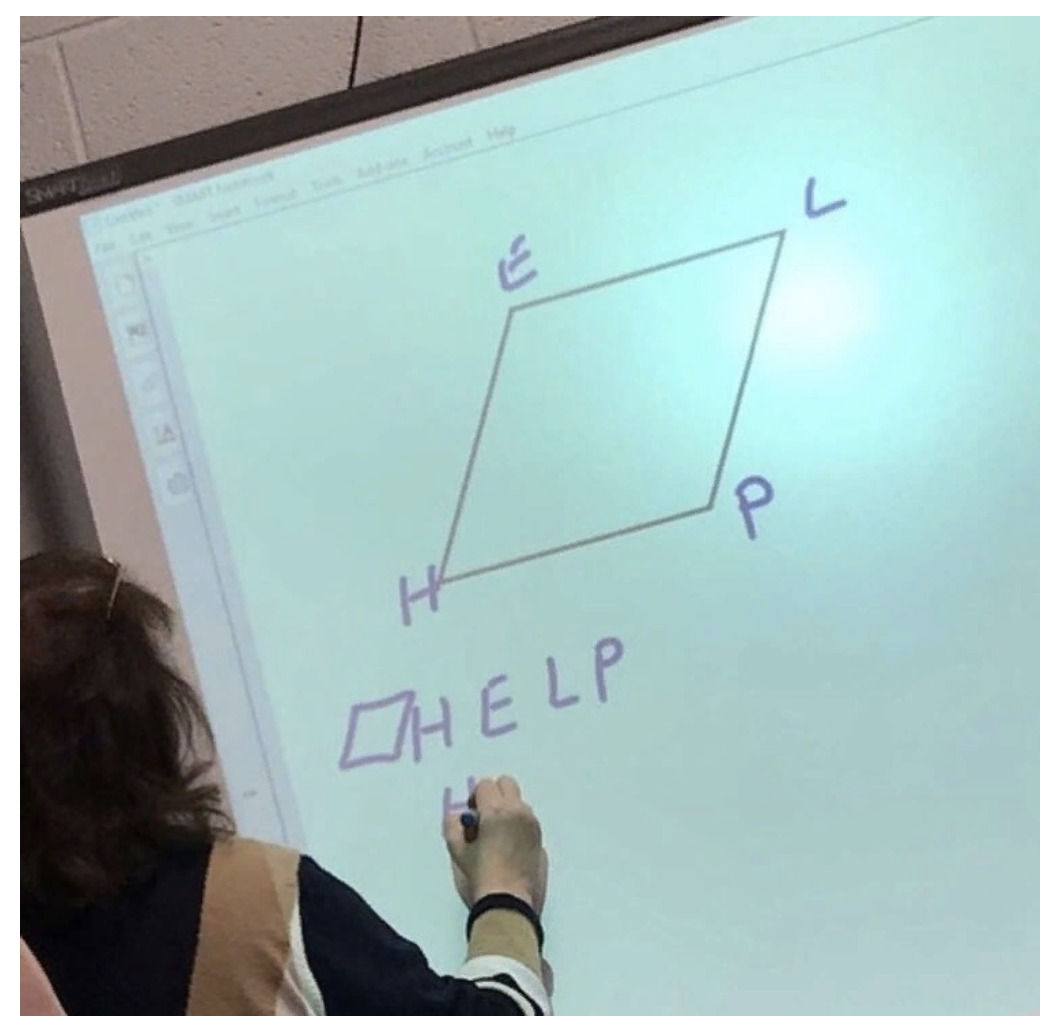 SMART Board
Untitled * - SMART Notebook
File Edit View Insert Format Tools Add-ons Account Help
E
L
H
P
HELP
H